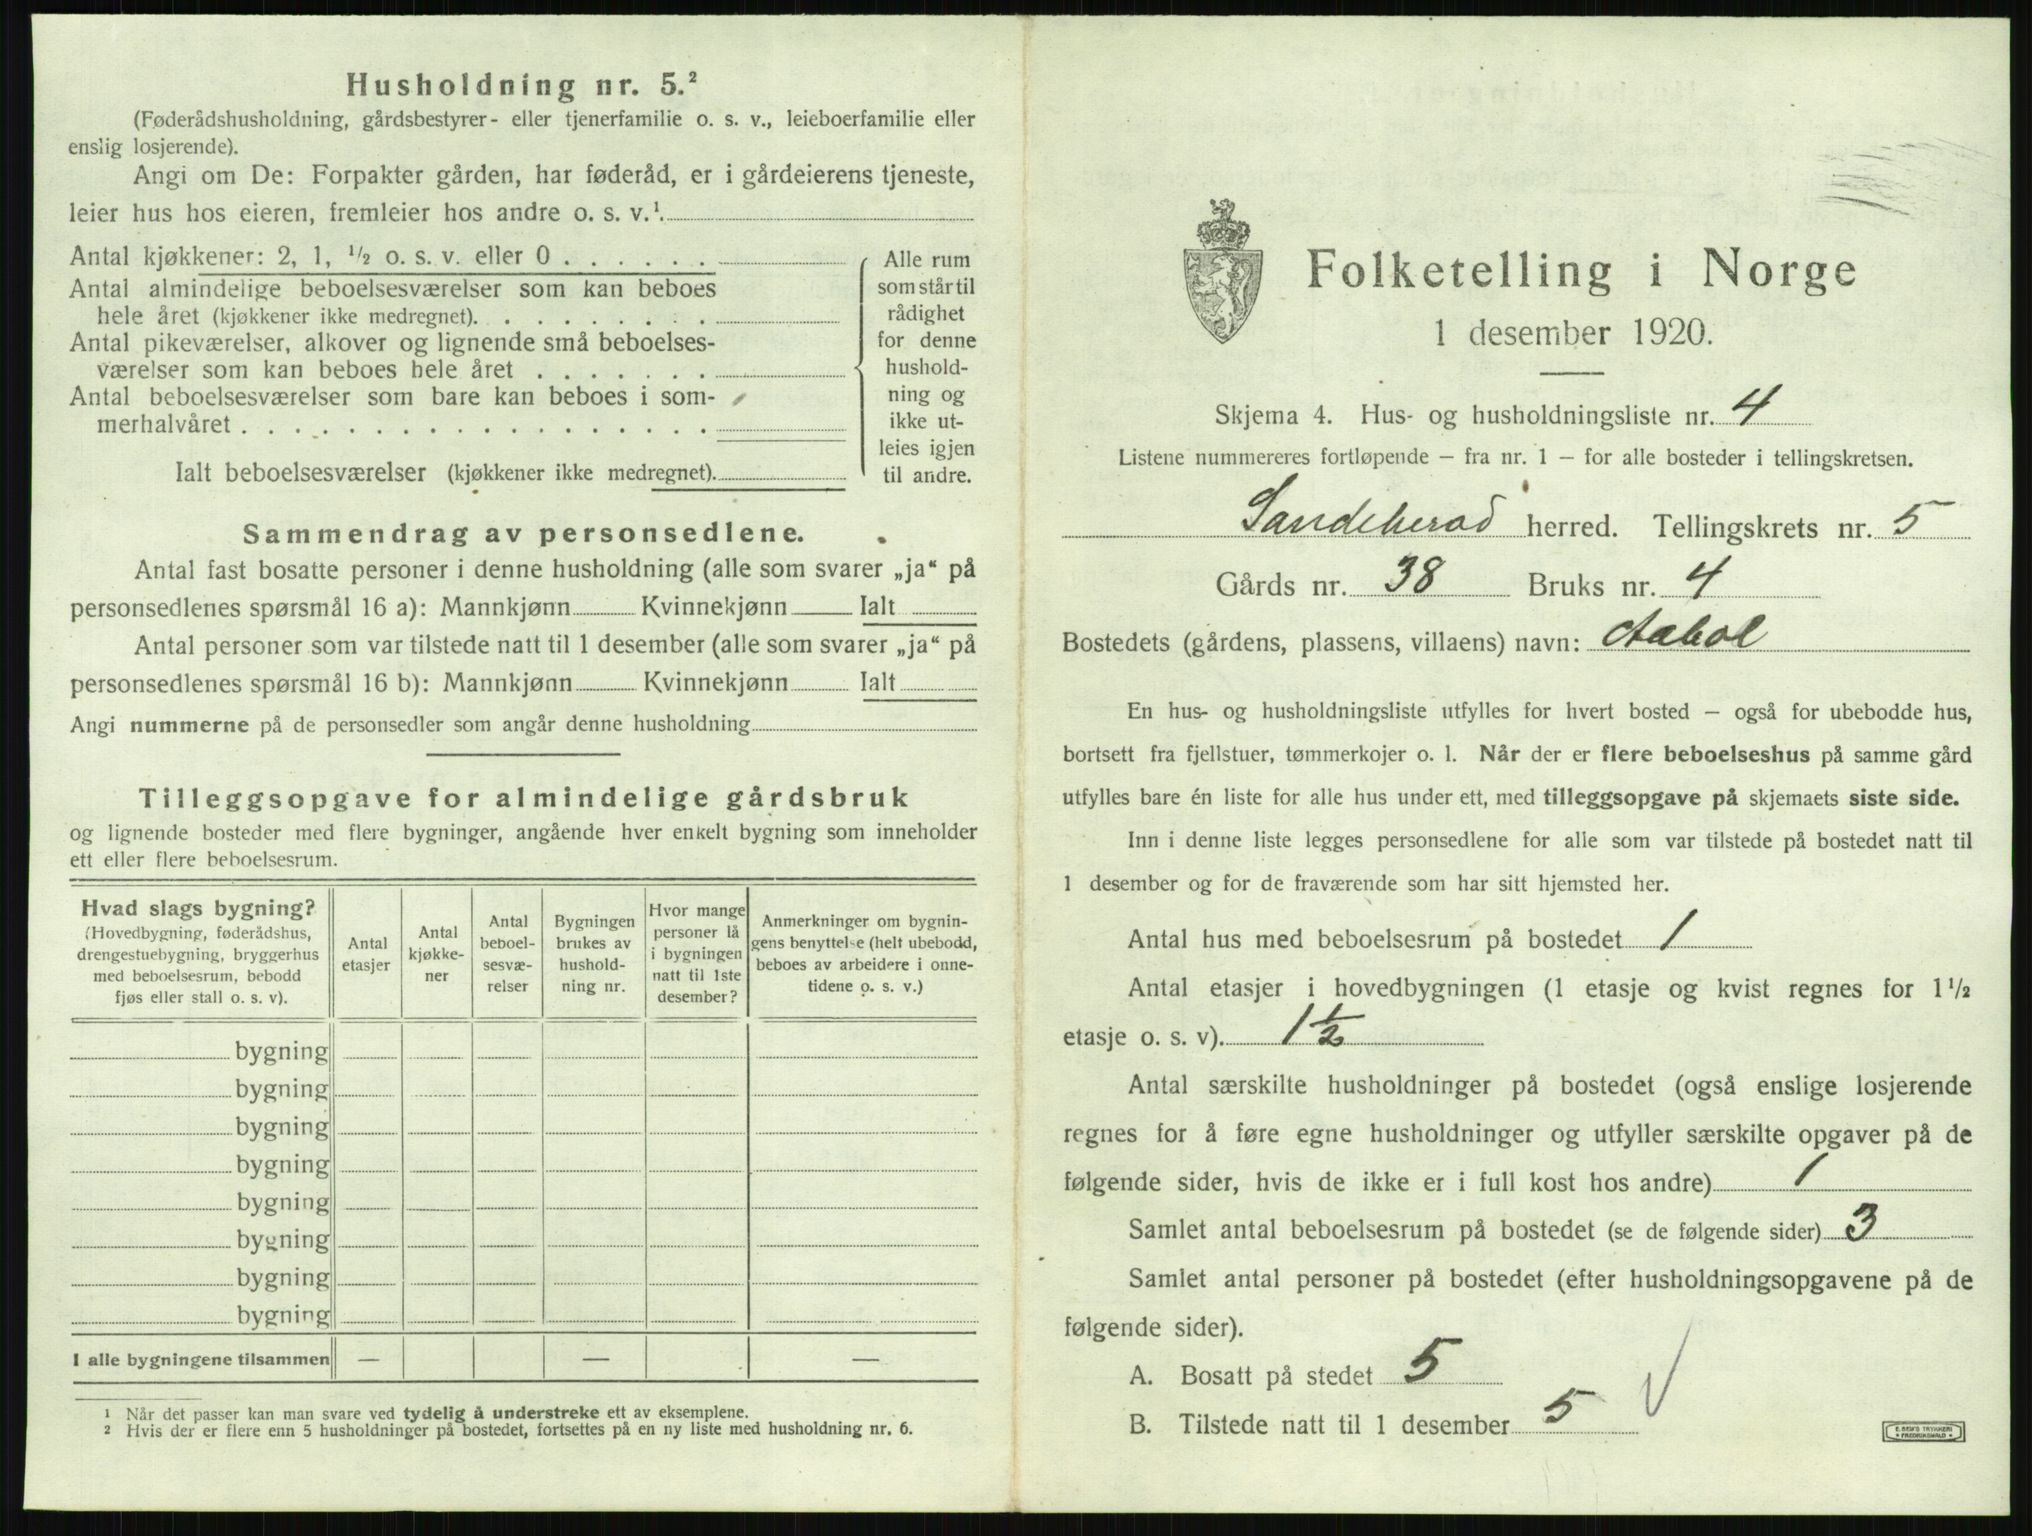 Husholdning nr. 5.²
(Føderådshusholdning, gårdsbestyrer- eller tjenerfamilie o. s. v., leieboerfamilie eller
enslig losjerende).
Angi om De: Forpakter gården, har føderåd, er i gårdeierens tjeneste,
leier hus hos eieren, fremleier hos andre o. s. v.¹
Antal kjøkkener: 2, 1, ½ o. s. v. eller 0 . . . . . .
Antal almindelige beboelsesværelser som kan beboes
hele året (kjøkkener ikke medregnet). . . . . . . . .
Antal pikeværelser, alkover og lignende små beboelses-
værelser som kan beboes hele året . . . . . . .
Antal beboelsesværelser som bare kan beboes i som-
merhalvåret . . . . . . . . . . . . . . . . . .
Ialt beboelsesværelser (kjøkkener ikke medregnet).
Alle rum
som står til
rådighet
for denne
hushold-
ning og
ikke ut-
leies igjen
til andre.
Sammendrag av personsedlene.
Antal fast bosatte personer i denne husholdning (alle som svarer „ja“ på
personsedlenes spørsmål 16 a): Mannkjønn Kvinnekjønn Ialt
Antal personer som var tilstede natt til 1 desember (alle som svarer „ja“ på
personsedlenes spørsmål 16 b): Mannkjønn Kvinnekjønn Ialt
Angi nummerne på de personsedler som angår denne husholdning
Tilleggsopgave for almindelige gårdsbruk
og lignende bosteder med flere bygninger, angående hver enkelt bygning som inneholder
ett eller flere beboelsesrum.
Hvad slags bygning?
(Hovedbygning, føderådshus,
drengestuebygning, bryggerhus
med beboelsesrum, bebodd
fjøs eller stall o. s. v).
Antal
etasjer
Antal
kjøkke-
ner
Antal
beboel-
sesvæ-
relser
Bygningen
brukes av
hushold-
ning nr.
Hvor mange
personer lå
i bygningen
natt til 1ste
desember?
Anmerkninger om bygnin-
gens benyttelse (helt ubebodd,
beboes av arbeidere i onne-
tidene o. s. v.)
bygning
bygning
bygning
bygning
bygning
bygning
bygning
bygning
I alle bygningene tilsammen — — —
¹ Når det passer kan man svare ved tydelig å understreke ett av eksemplene.
² Hvis der er flere enn 5 husholdninger på bostedet, fortsettes på en ny liste med husholdning nr. 6.
Folketelling i Norge
1 desember 1920.
Skjema 4. Hus- og husholdningsliste nr. 4
Listene nummereres fortløpende – fra nr. 1 – for alle bosteder i tellingskretsen.
Sandeherad herred. Tellingskrets nr. 5
Gårds nr. 38 Bruks nr. 4
Bostedets (gårdens, plassens, villaens) navn: Aabol
En hus- og husholdningsliste utfylles for hvert bosted – også for ubebodde hus,
bortsett fra fjellstuer, tømmerkojer o. l. Når der er flere beboelseshus på samme gård
utfylles bare én liste for alle hus under ett, med tilleggsopgave på skjemaets siste side.
Inn i denne liste legges personsedlene for alle som var tilstede på bostedet natt til
1 desember og for de fraværende som har sitt hjemsted her.
Antal hus med beboelsesrum på bostedet 1
Antal etasjer i hovedbygningen (1 etasje og kvist regnes for 1½
etasje o. s. v). 1½
Antal særskilte husholdninger på bostedet (også enslige losjerende
regnes for å føre egne husholdninger og utfyller særskilte opgaver på de
følgende sider, hvis de ikke er i full kost hos andre) 1
Samlet antal beboelsesrum på bostedet (se de følgende sider) 3
Samlet antal personer på bostedet (efter husholdningsopgavene på de
følgende sider).
A. Bosatt på stedet 5
B. Tilstede natt til 1 desember 5